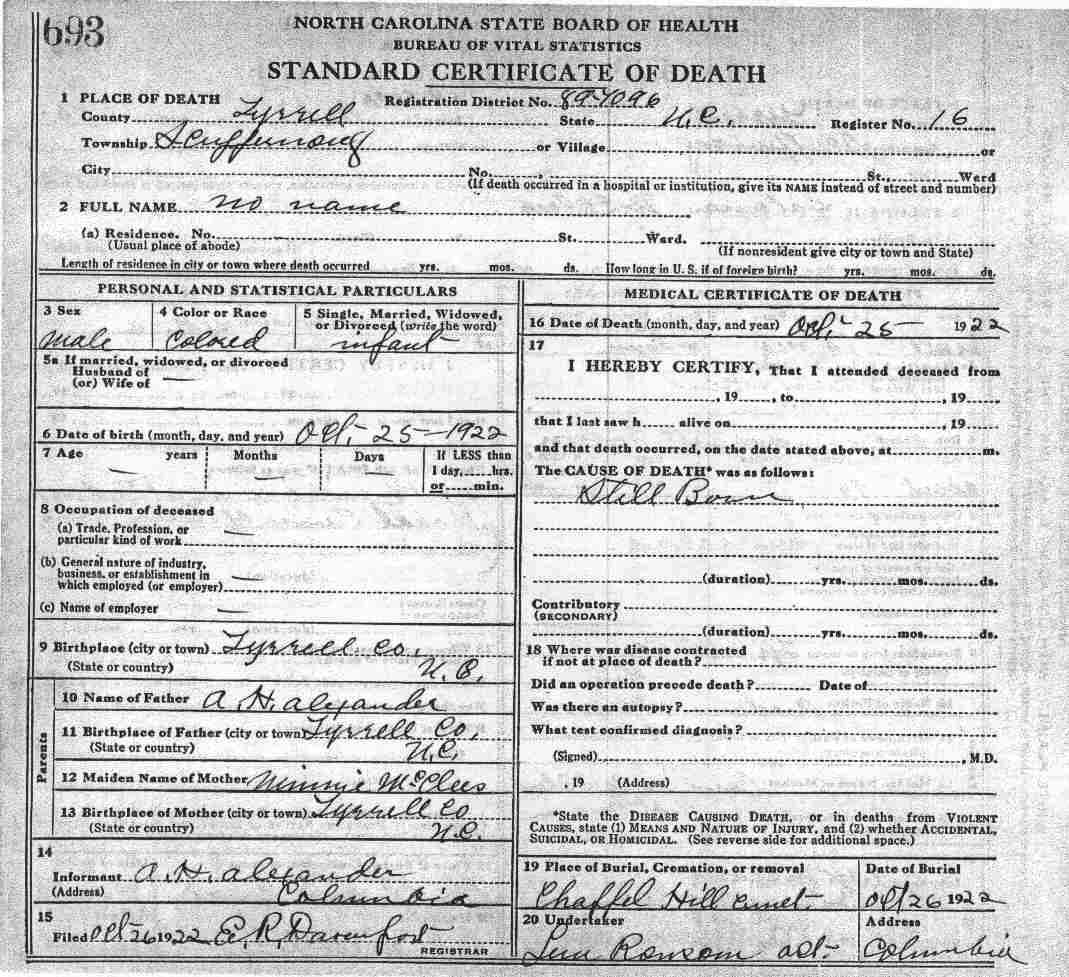 693
NORTH CAROLINA STATE BOARD OF HEALTH
BUREAU OF VITAL STATISTICS
STANDARD CERTIFICATE OF DEATH
1 PLACE OF DEATH Registration District No. 89-7096
County Tyrrell State N.C. Register No. 16
Township Scuppernong or Village or
City No. , St., Ward
(If death occurred in a hospital or institution, give its NAME instead of street and number)
2 FULL NAME no name
(a) Residence. No. St. Ward.
(Usual place of abode) (If nonresident give city or town and State)
Length of residence in city or town where death occurred yrs. mos. ds. How long in U. S. if of foreign birth? yrs. mos. ds.
PERSONAL AND STATISTICAL PARTICULARS
3 Sex 4 Color or Race 5 Single, Married, Widowed,
or Divorced (write the word)
male Colored infant
5a If married, widowed, or divorced
Husband of
(or) Wife of —
6 Date of birth (month, day, and year) Oct, 25-1922
7 Age years Months Days If LESS than
1 day, hrs.
or min.
— —
8 Occupation of deceased
(a) Trade, Profession, or
particular kind of work —
(b) General nature of industry,
business, or establishment in
which employed (or employer) —
(c) Name of employer —
9 Birthplace (city or town) Tyrrell Co,
(State or country) N.C.
Parents
10 Name of Father A. H. alexander
11 Birthplace of Father (city or town) Tyrrell Co,
(State or country) N.C.
12 Maiden Name of Mother Minnie McClees
13 Birthplace of Mother (city or town) Tyrrell Co
(State or country) N.C.
14
Informant A. H. alexander
(Address) Columbia
15
Filed Oct-26 1922 E. R. Davenport
REGISTRAR
MEDICAL CERTIFICATE OF DEATH
16 Date of Death (month, day, and year) Oct, 25 1922
17
I HEREBY CERTIFY, That I attended deceased from
, 19 , to , 19
that I last saw h alive on , 19
and that death occurred, on the date stated above, at m.
The CAUSE OF DEATH* was as follows:
Still Born
(duration) yrs. mos. ds.
Contributory
(SECONDARY)
(duration) yrs. mos. ds.
18 Where was disease contracted
if not at place of death?
Did an operation precede death? Date of
Was there an autopsy?
What test confirmed diagnosis?
(Signed) , M.D.
, 19 (Address)
*State the DISEASE CAUSING DEATH, or in deaths from VIOLENT
CAUSES, state (1) MEANS AND NATURE OF INJURY, and (2) whether ACCIDENTAL,
SUICIDAL, OR HOMICIDAL. (See reverse side for additional space.)
19 Place of Burial, Cremation, or removal Date of Burial
Chappel Hill Oct 26 1922
20 Undertaker Address
Ransom Columbia